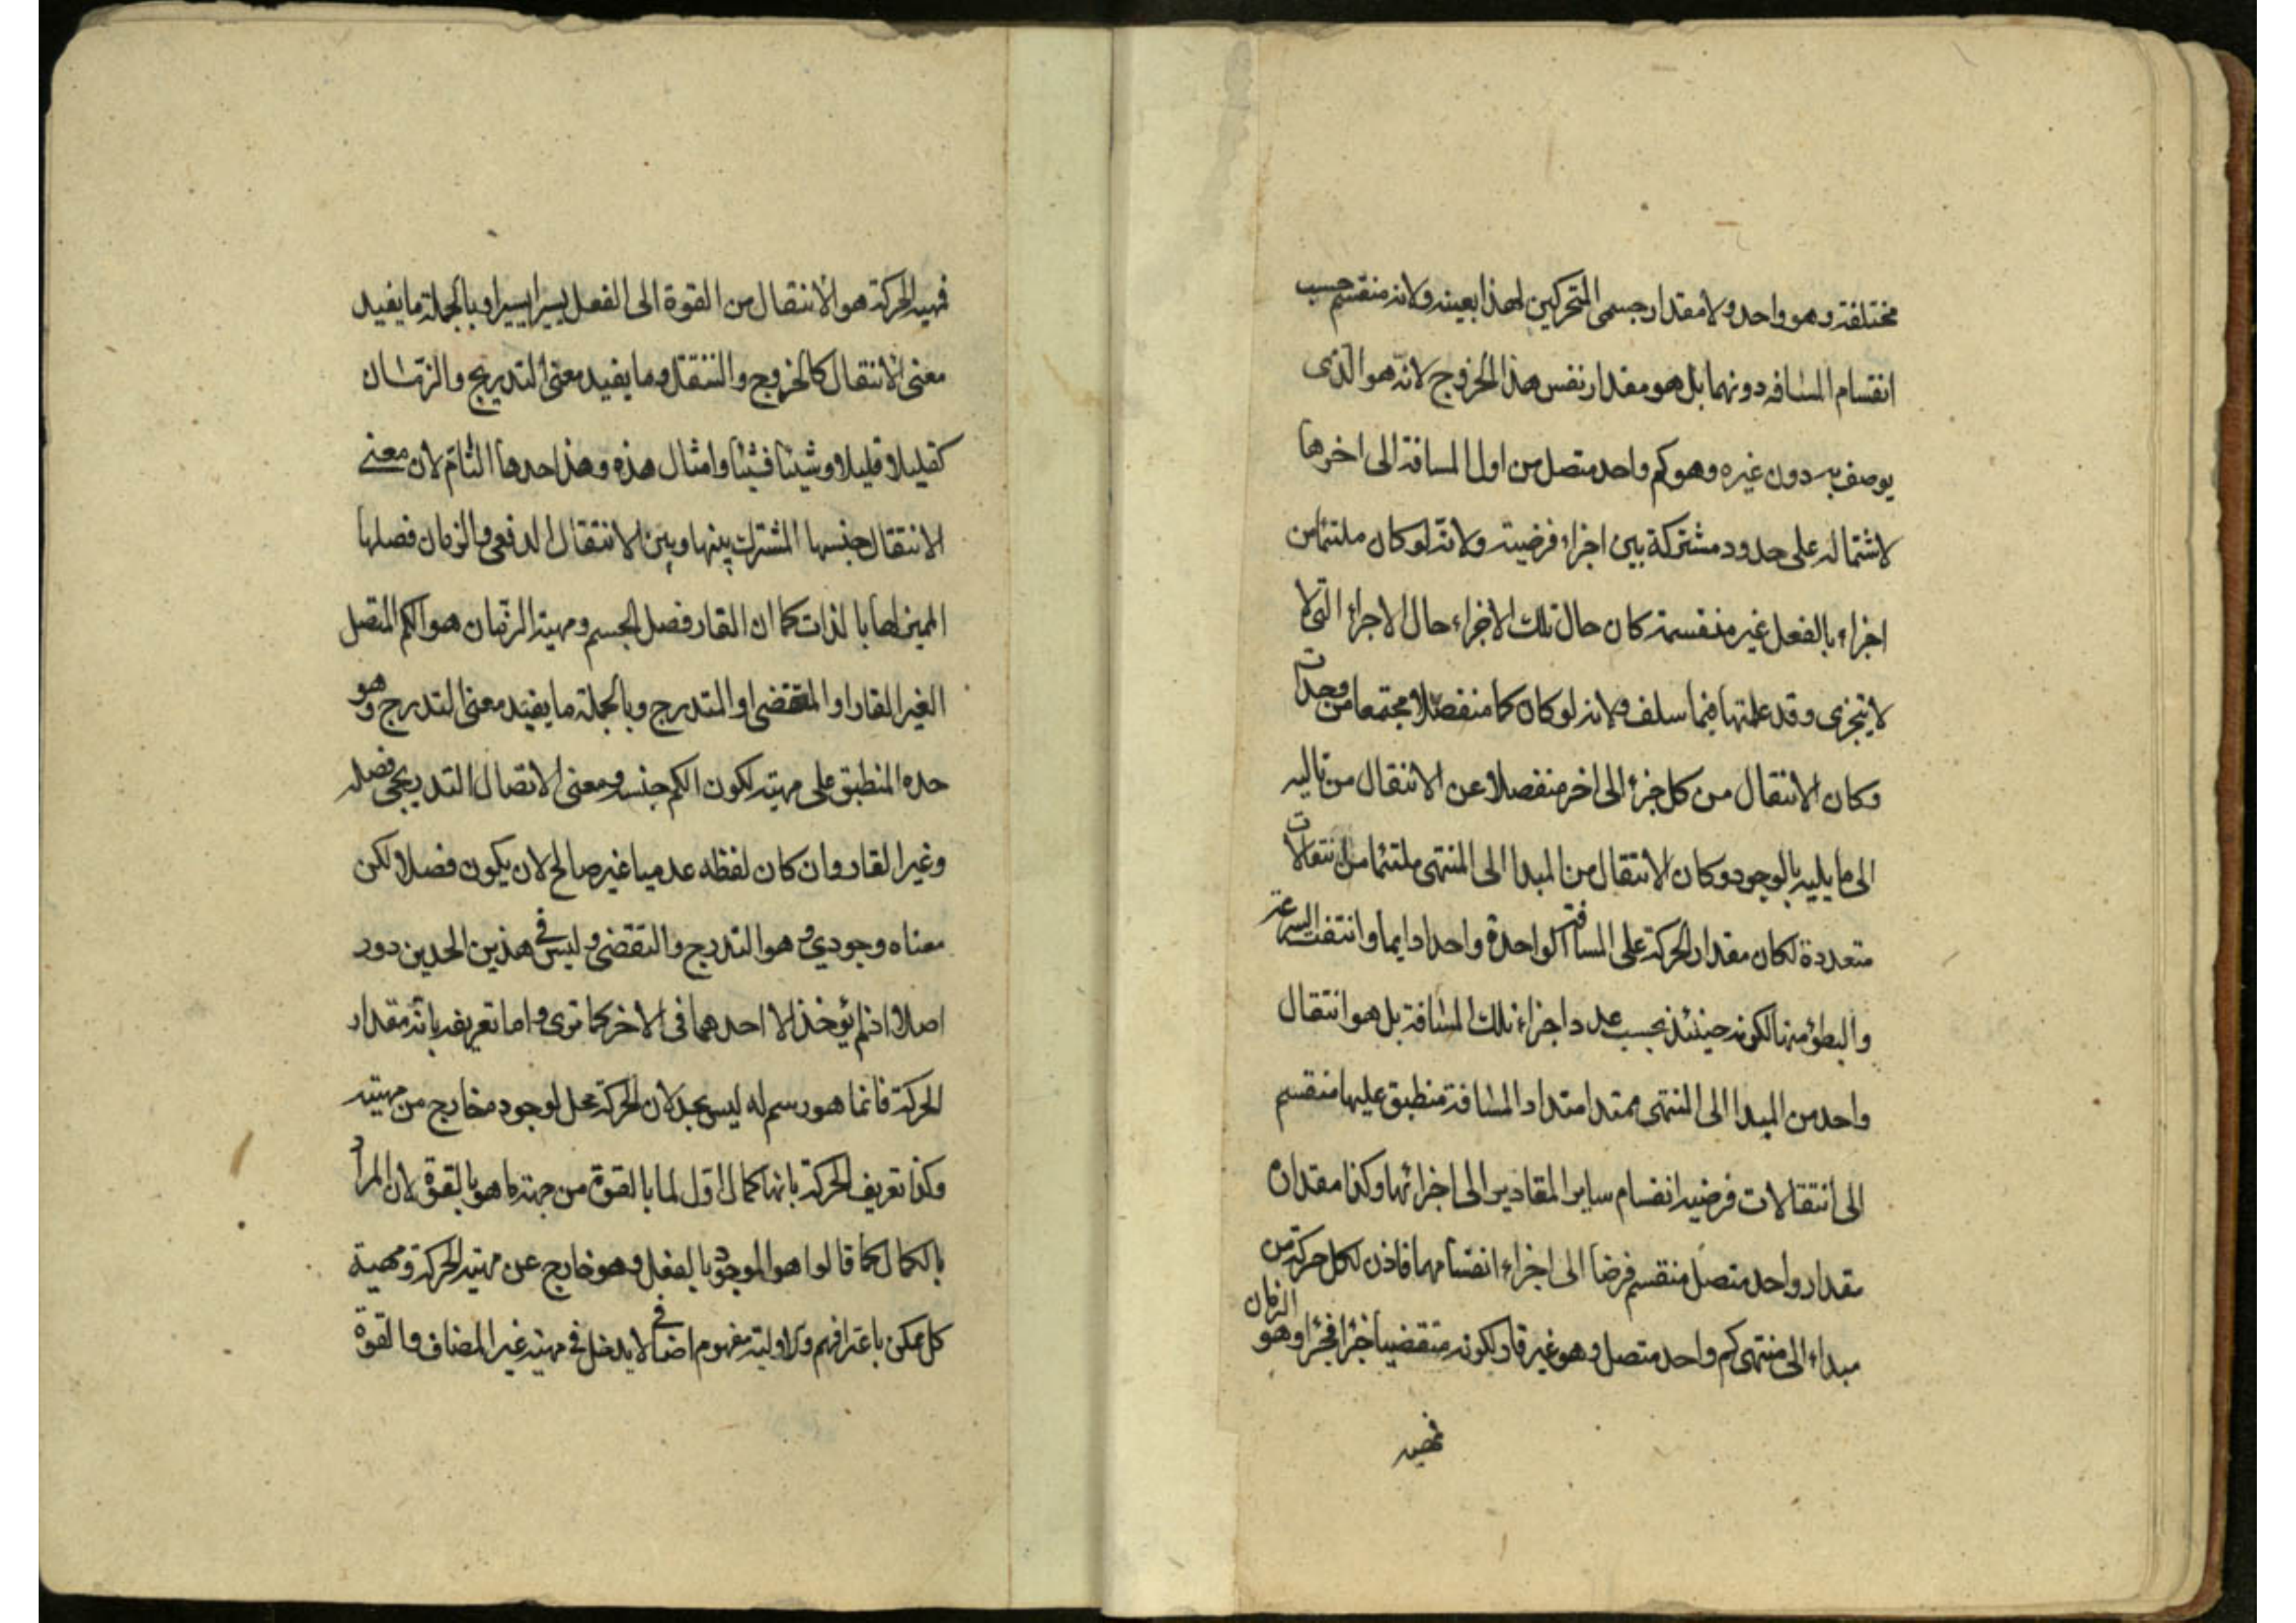 مختلفة وهو واحد ولا مقدار جسمى المتحركين لهذا بعينه ولانه منقسم حسب
انقسام المسافه دونهما بل هو مقدار نفس هذا الخروج لانّه هو الذى
يوصف به دون غيره وهو كم واحد متصل من اول المسافة الى اخرها
لاشتماله على حدود مشتركة بين اجزاء فرضية ولانّه لو كان ملتئما من
اجزاء بالفعل غير منقسمة كان حال تلك الاجزاء حال الاجزاء التى لا
لا يتجزى وقد علمتها فيما سلف ولانه لو كان كما منفصلا مجتمعا من وحدات
وكان الانتقال من كل جزء الى اخر منفصلا عن الانتقال من تاليه
الى ما يليه بالوجود وكان الانتقال من المبدا الى المنتهى ملتئما من انتقالات
متعددة لكان مقدار الحركة على المسافة الواحدة واحدا دايما وانتفت السرعة
والبطؤ منها لكونه حينئذ بحسب عدد اجزاء تلك المسافة بل هو انتقال
واحد من المبدا الى المنتهى ممتد امتداد المسافة منطبق عليها منقسم
الى انتقالات فرضية انقسام ساير المقادير الى اجزائها وكذا مقداره
مقدار واحد متصل منقسم فرضا الى اجزاء انقسامهما فاذن لكل حركة من
مبداء الى منتهى كم واحد متصل وهو غير قار لكونه متقضيا جزا فجزا وهو الزمان
فمهية
فمهية الحركة هو الانتقال من القوة الى الفعل يسيرا يسيرا وبالجملة ما يفيد
معنى الانتقال كالخروج والتنقل وما يفيد معنى التدريج والزمان
كقليلا قليلا وشيئا فشيئا وامثال هذه وهذا حدها التام لان معنى
الانتقال جنسها المشترك بينها وبين الانتقال الدفعى والزمان فصلها
المميز لها بالذات كما ان القار فصل الجسم ومهية الزمان هو الكم المتصل
الغير القار او المتقضى او المتدرج وبالجملة ما يفيد معنى التدرج وهو
حده المنطبق على مهيته لكون الكم جنسه ومعنى الاتصال التدريجى فصله
وغير القار وان كان لفظه عدميا غير صالح لان يكون فصلا لكن
معناه وجودي وهو التدرج والتقضى وليس فى هذين الحدين دور
اصلا اذ لم يؤخذ الا احدهما فى الاخر كما ترى واما تعريفه بانّه مقدار
الحركة فانما هو رسم له ليس بحد لان الحركة محل لوجوده خارج من مهيته
وكذا تعريف الحركة بانها كمال اول لما بالقوة من جهة ما هو بالقوة لان المراد
بالكمال كما قالوا هو الموجود بالفعل وهو خارج عن مهية الحركة ومهية
كل ممكن باعترافهم والاولية مفهوم اضافى لا يدخل فى مهية غير المضاف والقوة